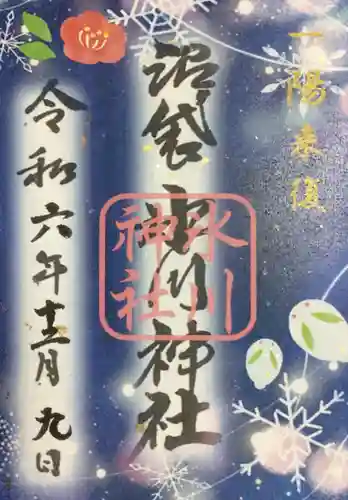 一陽来復
沼袋氷川神社
氷川
神社
令和六年十二月九日